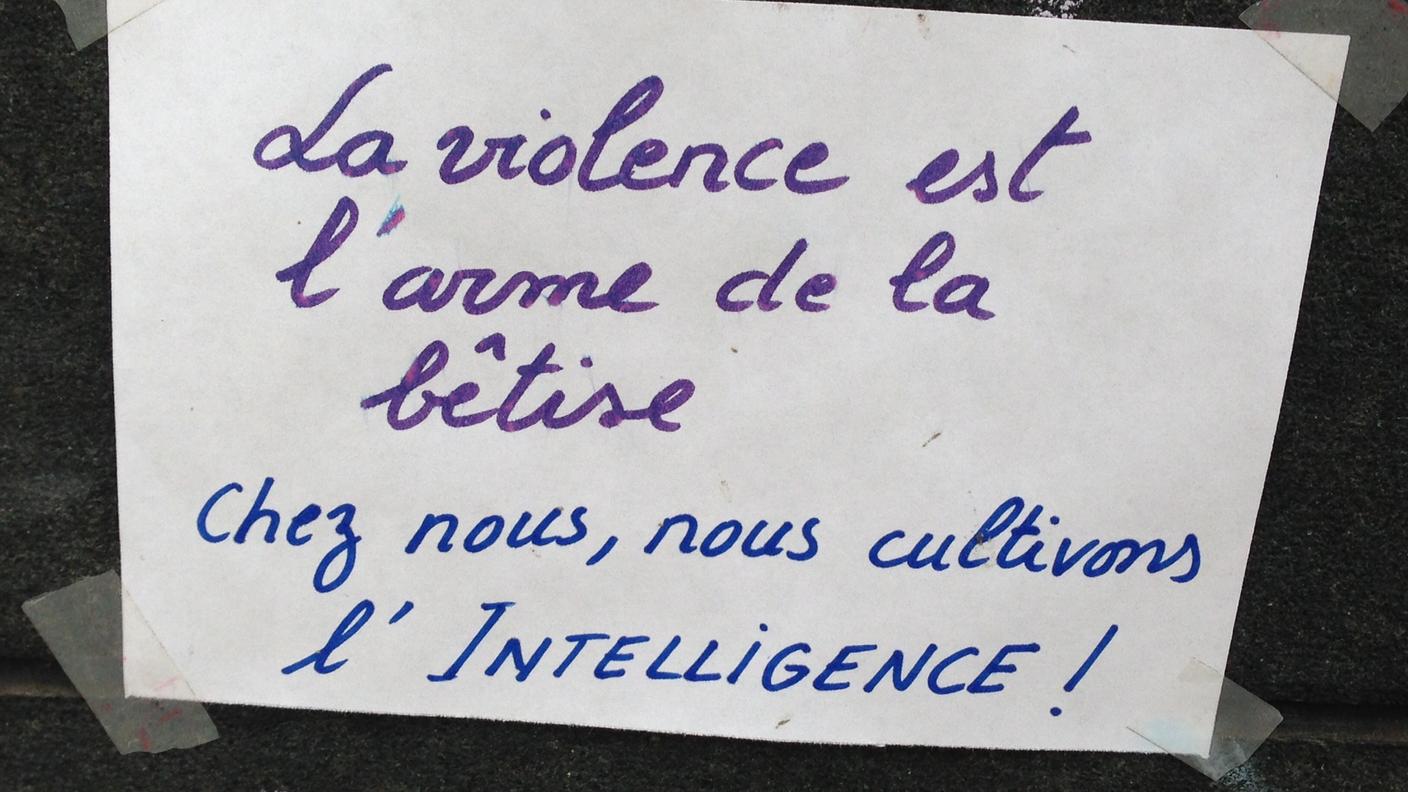 La violence est
l'arme de la
bêtise
Chez nous, nous cultivons
l' INTELLiGENCE !